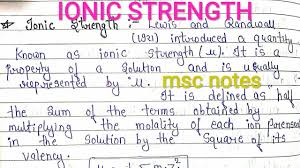 IONIC STRENGTH
Ionic Strength :- Lewis and Randall
(1921) introduced a quantity
Known as ionic Strength (μ). It is a
property of a solution and is usually
represented by μ. msc notes
It is defined as half
the Sum of the terms obtained by
multiplying the molality of each ion
in the Solution by the Square of its
valency: